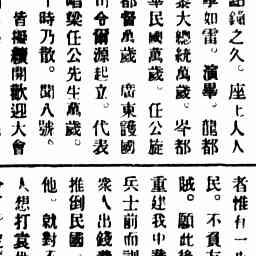 點鐘之久。座上人人
如雷。演畢。龍都
黎大總統萬歲。岑都
華民國萬歲。任公旋
都督萬歲 廣東護國
司令爾源起立。代表
唱梁任公先生萬歲。
時乃散。聞八號、
皆擬續開歡迎大會
者惟有一
民。不負
賊。願此後
重建我中
兵士前而訓
衆人出錢
推倒民國
他。就對不
人想打袁